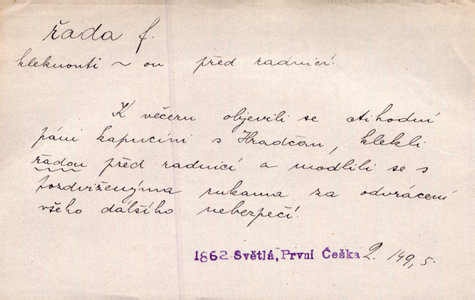 řada f.
kleknouti ~ ou před radnicí.
K večeru objevili se ctihodní
páni kapucíni s Hradčan, klekli
řadou před radnicí a modlili se s
pozdviženýma rukama za odvrácení
všeho dalšího nebezpečí.
1862 Světlá, První Češka 2. 149, 5.